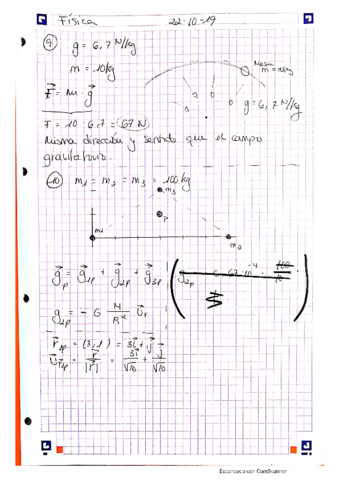 Física 22-10-19
9) g = 6,7 N/kg
m = 10kg
Masa
m = 10kg
g = 6,7 N/kg
F = m · g
F = 10 · 6,7 = 67 N
Misma dirección y sentido que el campo
gravitatorio.
10 m₁ = m₂ = m₃ = 100 kg
m₃
P
m₁
m₂
g⃗p = g⃗1p + g⃗2p + g⃗3p
g1p = - G M/R² u⃗r
r⃗1p = (3,1) = 3i⃗ + j⃗
u⃗r1p = r⃗/|r⃗| = 3i⃗/√10 + j⃗/√10
Escaneado con CamScanner